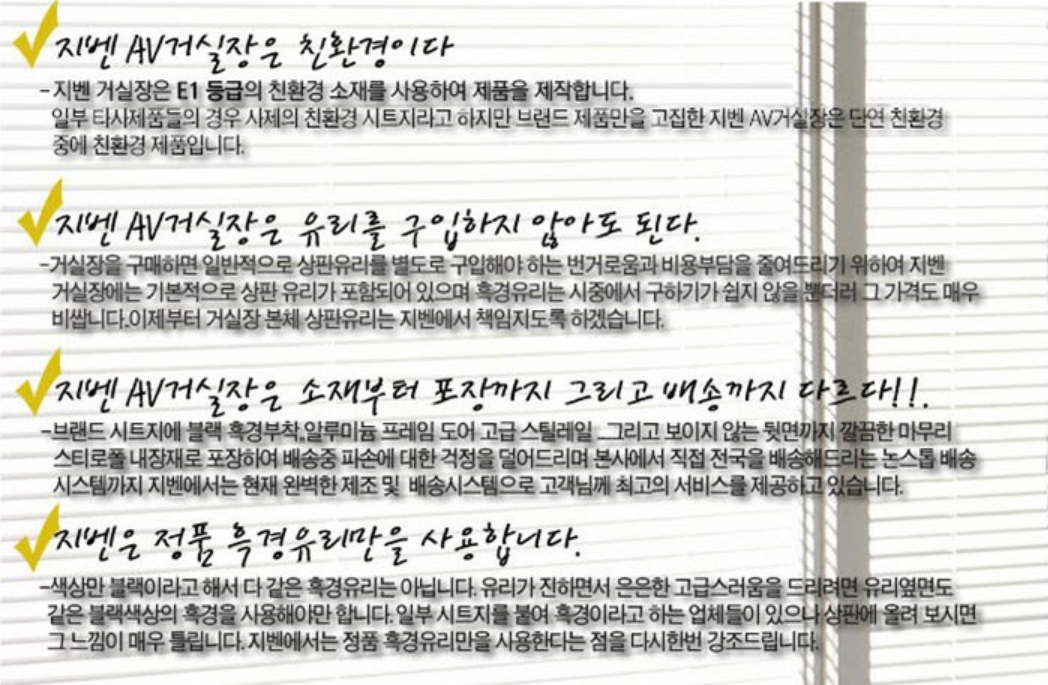 지벤 AV거실장은 친환경이다
-지벤 거실장은 E1 등급의 친환경 소재를 사용하여 제품을 제작합니다.
일부 타사제품들의 경우 사제의 친환경 시트지라고 하지만 브랜드 제품만을 고집한 지벤 AV거실장은 단연 친환경
중에 친환경 제품입니다.
지벤 AV거실장은 유리를 구입하지 않아도 된다.
-거실장을 구매하면 일반적으로 상판유리를 별도로 구입해야 하는 번거로움과 비용부담을 줄여드리기 위하여 지벤
거실장에는 기본적으로 상판 유리가 포함되어 있으며 흑경유리는 시중에서 구하기가 쉽지 않을 뿐더러 그 가격도 매우
비쌉니다.이제부터 거실장 본체 상판유리는 지벤에서 책임지도록 하겠습니다.
지벤 AV거실장은 소재부터 포장까지 그리고 배송까지 다르다!!.
-브랜드 시트지에 블랙 흑경부착,알루미늄 프레임 도어 고급 스틸레일 ..그리고 보이지 않는 뒷면까지 깔끔한 마무리
스티로폴 내장재로 포장하여 배송중 파손에 대한 걱정을 덜어드리며 본사에서 직접 전국을 배송해드리는 논스톱 배송
시스템까지 지벤에서는 현재 완벽한 제조 및 배송시스템으로 고객님께 최고의 서비스를 제공하고 있습니다.
지벤은 정품 흑경유리만을 사용합니다.
-색상만 블랙이라고 해서 다 같은 흑경유리는 아닙니다. 유리가 진하면서 은은한 고급스러움을 드리려면 유리옆면도
같은 블랙색상의 흑경을 사용해야만 합니다. 일부 시트지를 붙여 흑경이라고 하는 업체들이 있으나 상판에 올려 보시면
그 느낌이 매우 틀립니다. 지벤에서는 정품 흑경유리만을 사용한다는 점을 다시한번 강조드립니다.